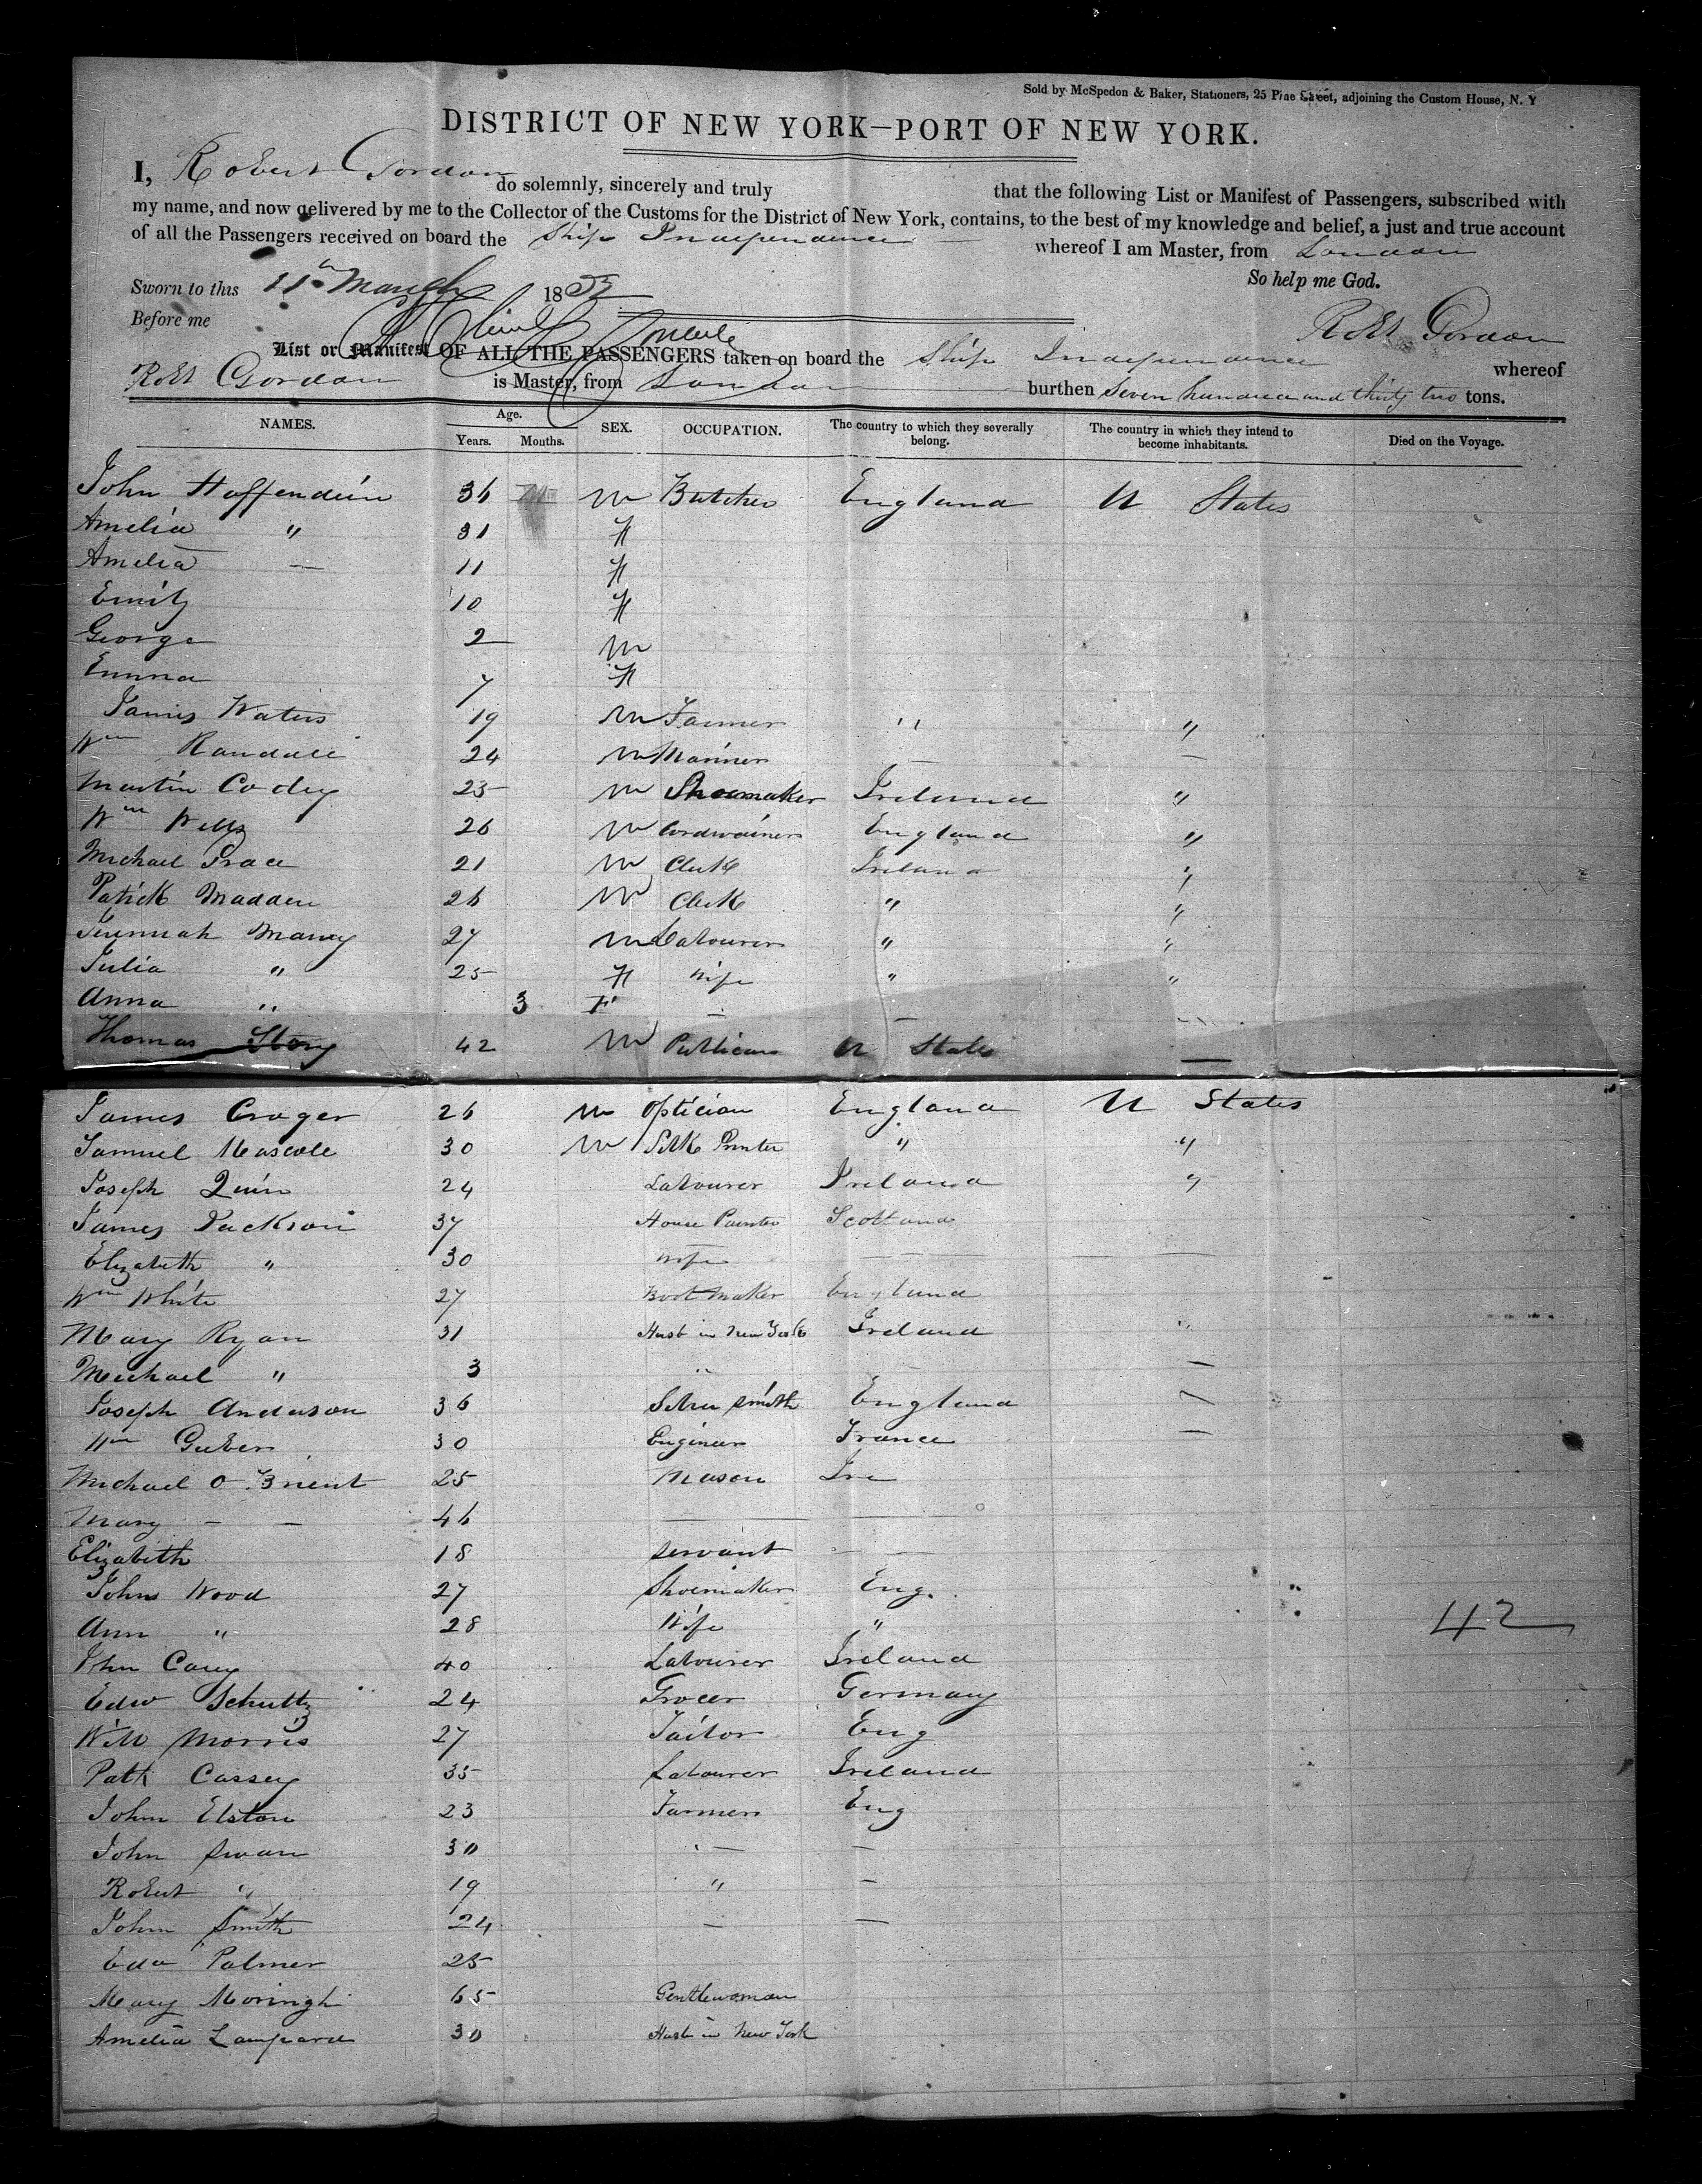 Sold by McSpedon & Baker, Stationers, 25 Pine Street, adjoining the Custom House, N. Y
DISTRICT OF NEW YORK—PORT OF NEW YORK.
I, Robert Gordon do solemnly, sincerely and truly that the following List or Manifest of Passengers, subscribed with
my name, and now delivered by me to the Collector of the Customs for the District of New York, contains, to the best of my knowledge and belief, a just and true account
of all the Passengers received on board the Ship Independence whereof I am Master, from London
So help me God.
Sworn to this 11th March 185
Before me
Robt Gordon
List or Manifest OF ALL THE PASSENGERS taken on board the Ship Independence whereof
Robt Gordon is Master, from London burthen Seven hundred and thirty two tons.
NAMES. Age. Years. Mouths. SEX. OCCUPATION. The country to which they severally belong. The country in which they intend to become inhabitants. Died on the Voyage.
John Haffenden 36 M Butcher England U States
Amelia " 31 F
Amelia — 11 F
Emily 10 F
George 2 M
Emma 7 F
James Waters 19 M Farmer " "
Wm Randall 24 M Mariner — —
Martin Cody 25 M Shoemaker Ireland "
Wm Wells 26 M Cordwainer England "
Michael Grace 21 M Clerk Ireland "
Patrick Madden 26 M Clerk " "
Jeremiah Many 27 M Labourer " "
Julia " 25 F Wife " "
Anna " 3 F — —
Thomas Story 42 M Publican U States —
James Croger 26 M Optician England U States
Samuel 30 M Silk Printer " "
Joseph Quin 24 Labourer Ireland "
James Jackson 37 House Painter Scotland
Elizabeth " 30 Wife — —
Wm White 27 Boot Maker England
Mary Ryan 31 Husb in New York Ireland "
Michael " 3 " — —
Joseph Anderson 36 Silver Smith England —
Wm 30 Engineer France —
Michael O Brient 25 Mason Ire
Mary — — 46 — —
Elizabeth 18 Servant —
John Wood 27 Shoemaker Eng.
Ann " 28 Wife " 42
John Carey 40 Labourer Ireland
Edw Schultz 24 Grocer Germany
Will Morris 27 Tailor Eng
Patk Cassey 35 Labourer Ireland
John Elston 23 Farmer Eng
John Swan 30 — —
Robert " 19 " —
John Smith 24 — —
Edw Palmer 25
Mary 65 Gentlewoman
Amelia Lampard 30 Husb in New York